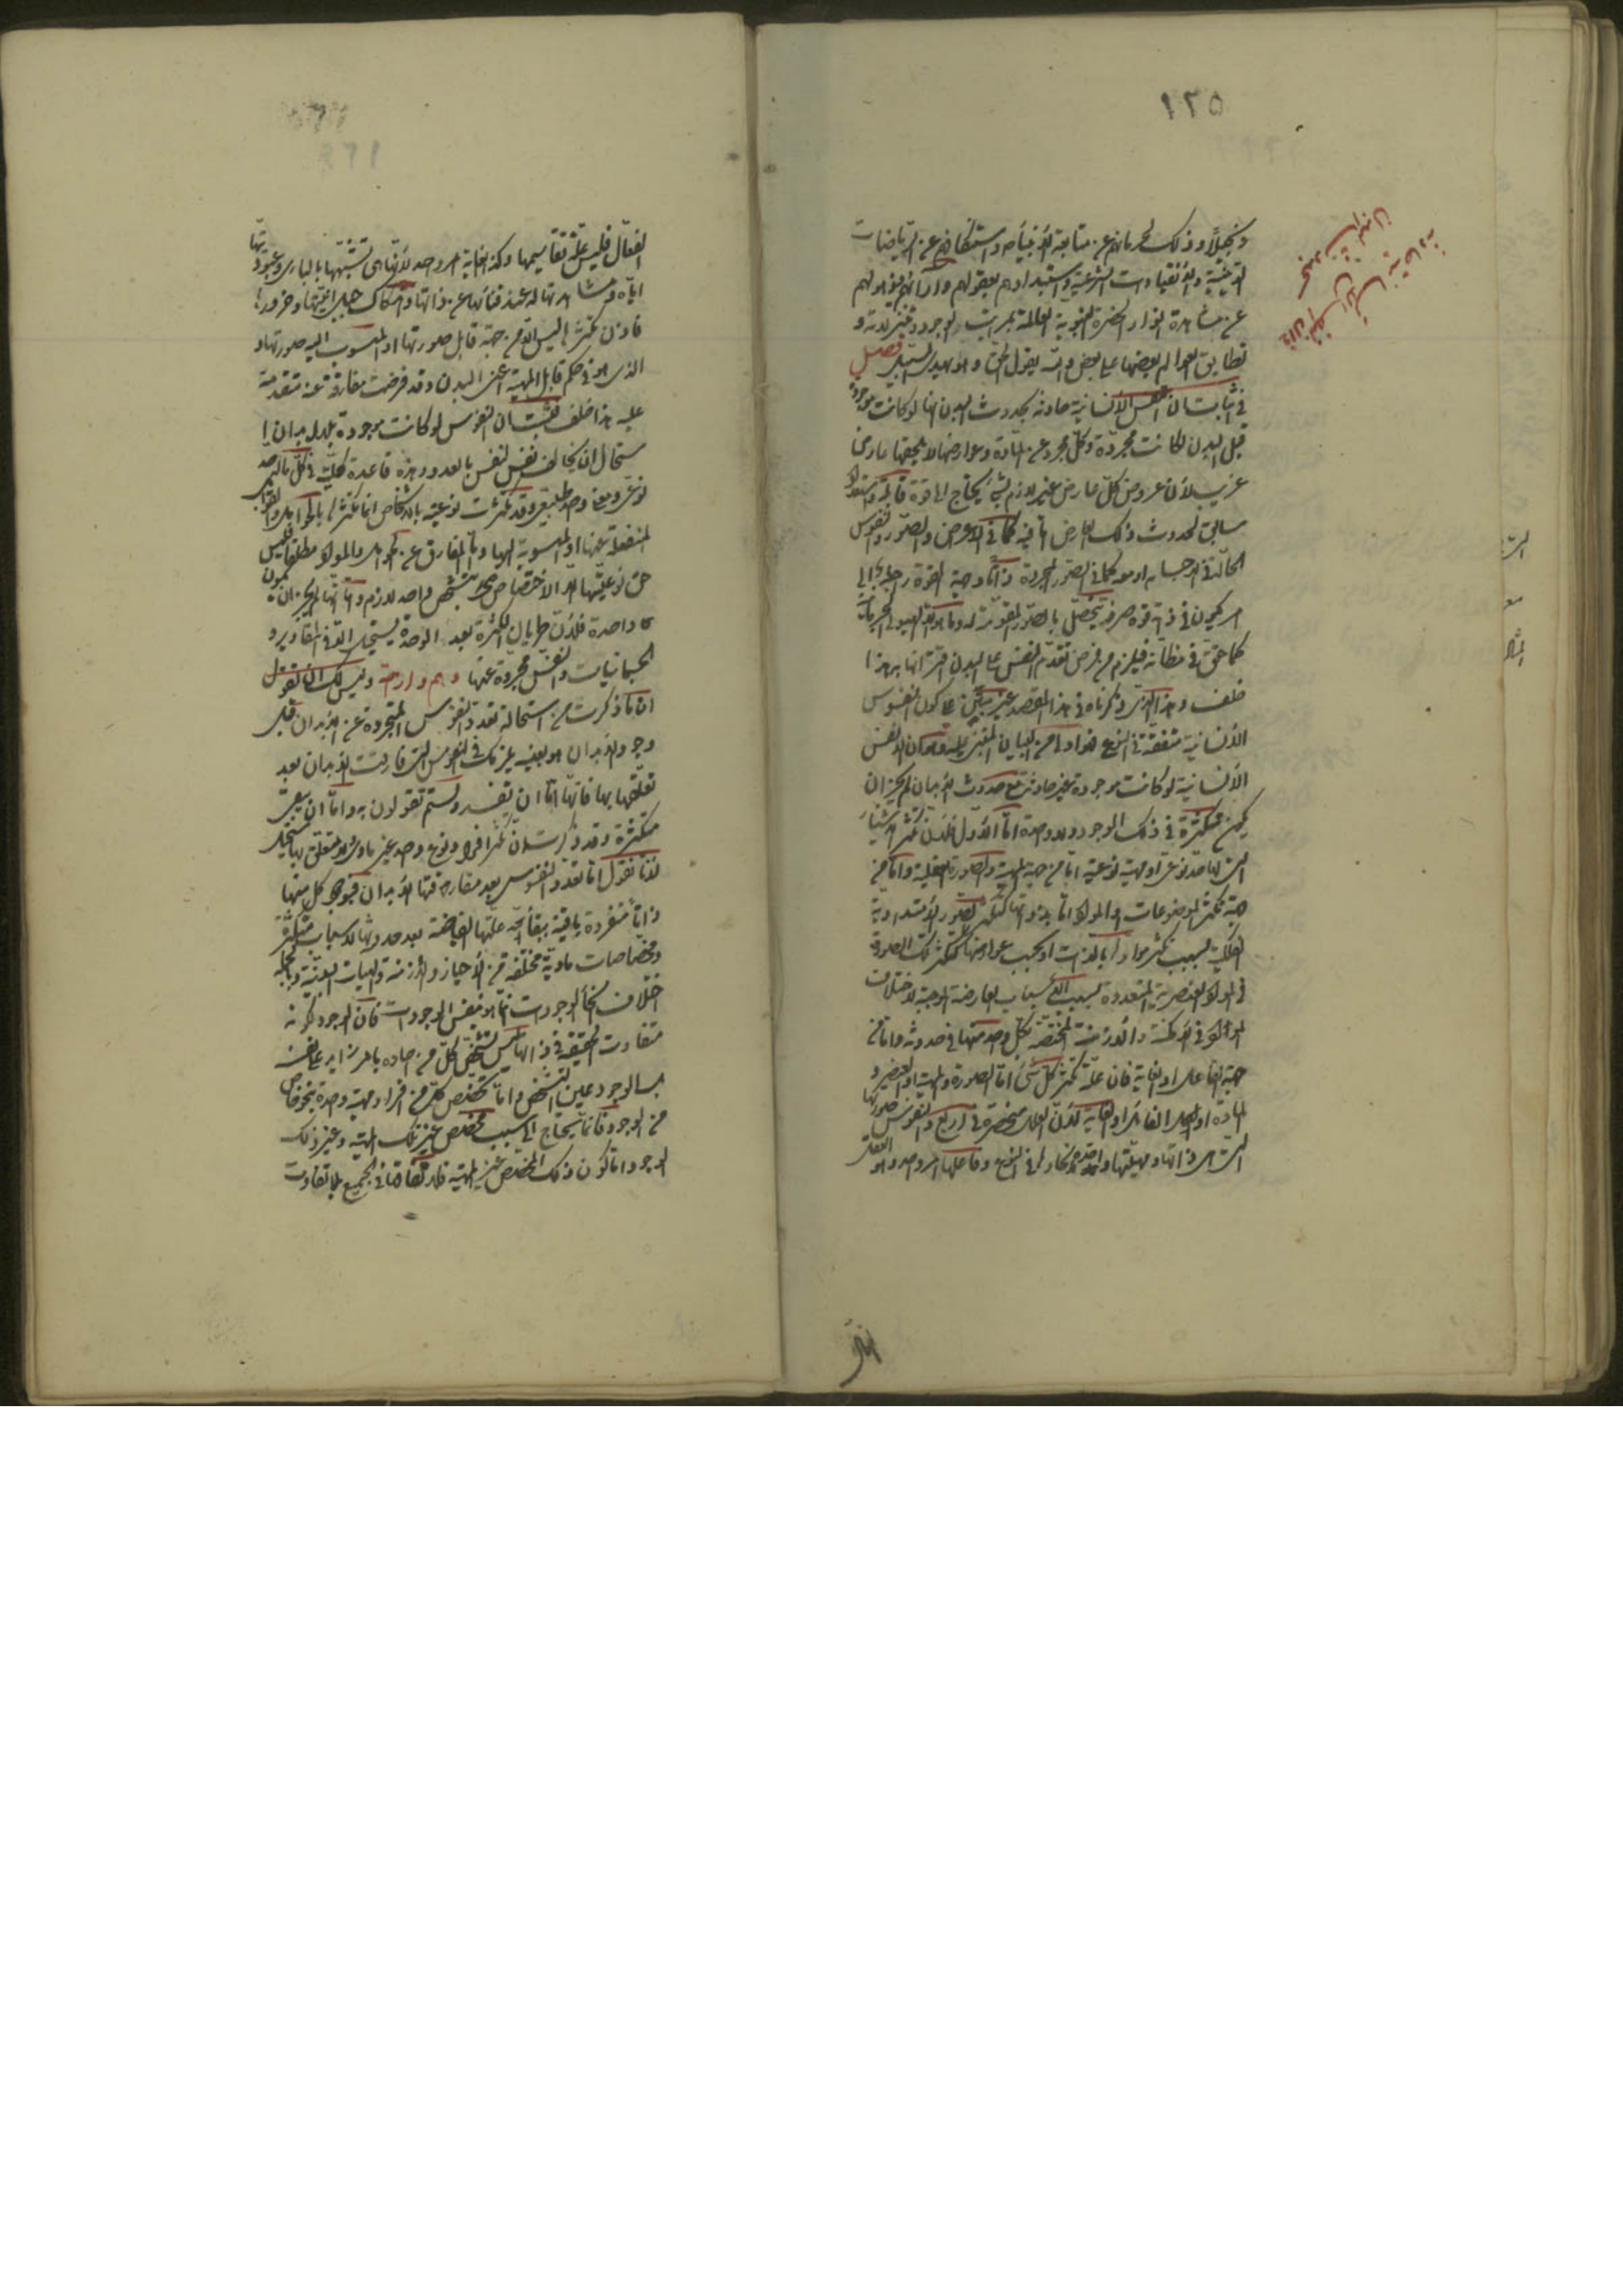 ١٢٥
وذلك لحرمانهم عن متابعة الأنبياء واستنكافهم عن الرياضات
الدينية والانقيادات الشرعية واستبدادهم بعقولهم وآرائهم
عن مشاهدة انوار الحضرة النبوية العالمة بمراتب الوجود و
تطابق العوالم بعضها على بعض والله يقول الحق وهو يهدي السبيل فصل
في اثبات ان النفس الانسانية حادثة بحدوث البدن انها لو كانت موجودة
قبل البدن لكانت مجردة وكل مجرد عن المادة وعوارضها لا يلحقها عارض
غريب لأن عروض كل عارض غير لازم لشيء يحتاج الى قوة قابلة واستعداد
سابق لحدوث ذلك العارض اما فيه كما في الاعراض والصور والنفوس
الحالة في الاجسام او معه كما في الصور المجردة ذاتا وجهة القوة راجعة الى
امر يكون في ذاته قوة صرفة يتحصل بالصور المقومة له وما هو الا الهيولى الجرمانية
كما حقق في مظانه فيلزم من فرض تقدم النفس على البدن اقترانها به هذا
خلف وهذا الذي ذكرناه في هذا المقصد غير مبتن على كون النفوس
الانسانية متفقة في النوع فهو اولى من البيان المبتني عليه وهو ان النفس
الانسانية لو كانت موجودة غير حادثة مع حدوث الابدان لم يجز ان
يكون متكثرة في ذلك الوجود ولا واحدة اما الاول فلان تكثر الاشياء
التي لها حد نوعي او مهية نوعية اما من جهة المهية والصورة العقلية واما من
جهة تكثر الموضوعات والمواد اما بذواتها كتكثر الصور الامتدادية
الفلكية بسبب تكثر موادها بالذات او بحسب عوارضها كتكثر تلك الصور
في المواد العنصرية المتعددة بسبب الاسباب العارضة الموجبة لاختلاف
المواد في الامكنة والازمنة المختصة بكل واحد منها في حدوثه واما من
جهة الفاعل او الغاية فان علة تكثر كل شيء اما الصورة والمهية او العنصر و
المادة او الفاعل او الغاية لان العلل منحصرة في اربع والنفوس صورتها
التي هي ذاتها ومهيتها واحدة لاتحادها في النوع وفاعلها امر واحد وهو العقل
الفعال فليس علة تقاسيمها وكذا غاية امر واحد لانها هي تشبهها بالباري وعبوديتها
اياه ومشاهدتها له عند فنائها عن ذاتها واندكاك جبل انيتها وخرورها
فاذن تكثرها ليس الا من جهة قابل صورتها او المنسوب اليه صورتها و
الذي هو في حكم قابل المهية اعني البدن وقد فرضت مفارقة عنه متقدمة
عليه هذا خلف فثبت ان النفوس لو كانت موجودة بلا ابدان
استحال ان يخالف نفس لنفس بالعدد وهذه قاعدة كلية في كل ما له حد
نوعي ومعنى واحد طبيعي وقد تكثرت نوعيته بالاشخاص انما تكثرها بالحوامل والقوابل
المنفعلة عنها او المنسوبة اليها واما المفارق عن الحوامل والمواد مطلقا فليس
حق نوعيتها الا الاختصاص بتشخص واحد لازم واما انها لم يجز ان يكون
واحدة فلان طريان الكثرة بعد الوحدة يستحيل الا في المقادير و
الجسمانيات والنفس مجردة عنها وهم وازاحة وليس لك ان تقول
ان ما ذكرت من استحالة تعدد النفوس المتجردة عن الابدان قبل
وجود الابدان هو بعينه يلزمك في النفوس التي فارقت الابدان بعد
تعلقها بها فانها اما ان تفسد ولستم تقولون به واما ان يبقى
متكثرة وقد ذكرت ان تكثر افراد نوع واحد غير مادي ولا متعلق بها مستحيل
لانا نقول اما تعدد النفوس بعد مفارقتها الابدان فبوجود كل منها
ذاتا منفردة باقية ببقاء علتها الفائضة بعد حدوثها لاسباب متكثرة
ومخصصات مادية مختلفة من الاحياز والازمنة والهيئات البدنية وبالجملة
اختلاف انحاء الوجودات انما هو بنفس الوجودات فان الوجود لكونه
متفاوت الحقيقة في ذاتها ليس تشخص كل من آحاده بامر زايد على نفسه
بل الوجود عين التشخص واما تخصص كل من افراد مهية واحدة بنحو خاص
من الوجود فانما يحتاج الى سبب مخصص غير تلك المهية وغير ذلك
الوجود اما كون ذلك المخصص غير المهية فلاتفاقها في الجميع بلا تفاوت